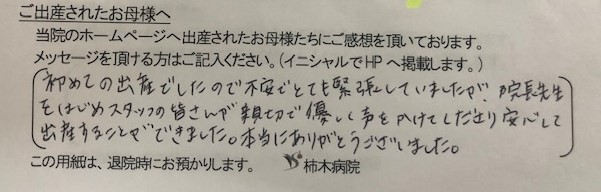 ご出産されたお母様へ
当院のホームページへ出産されたお母様たちにご感想を頂いております。
メッセージを頂ける方はご記入ください。（イニシャルでHPへ掲載します。）
初めての出産でしたので不安でとても緊張していましたが、院長先生
をはじめスタッフの皆さんが親切で優しく声をかけてくださり安心して
出産することができました。本当にありがとうございました。
この用紙は、退院時にお預かりします。 柿木病院